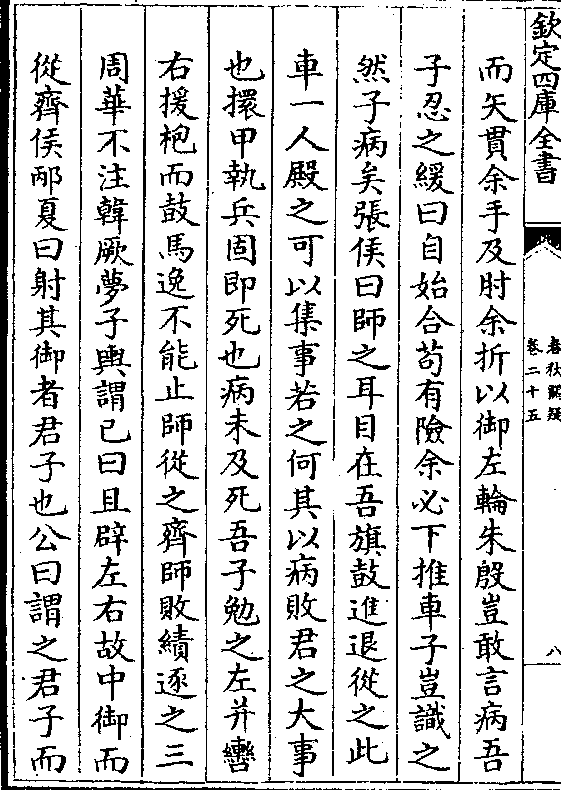 欽定四庫全書
春秋闕疑
卷二十五
八
而矢貫余手及肘余折以御左輪朱殷豈敢言病吾
子忍之緩曰自始合苟有險余必下推車子豈識之
然子病矣張侯曰師之耳目在吾旗鼓進退從之此
車一人殿之可以集事若之何其以病敗君之大事
也擐甲執兵固即死也病未及死吾子勉之左并轡
右援枹而鼓馬逸不能止師從之齊師敗績逐之三
周華不注韓厥夢子輿謂已曰且辟左右故中御而
從齊侯邴夏曰射其御者君子也公曰謂之君子而